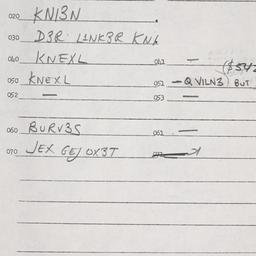 020 KNI3N
030 D3R L1NK3R KN
040 KNEXL 041 — ($542
050 KNEXL 051 — Q VILN3) BUT
052 — 053 —
060 BURV3S 061 —
070 JEX GEJ OX3T